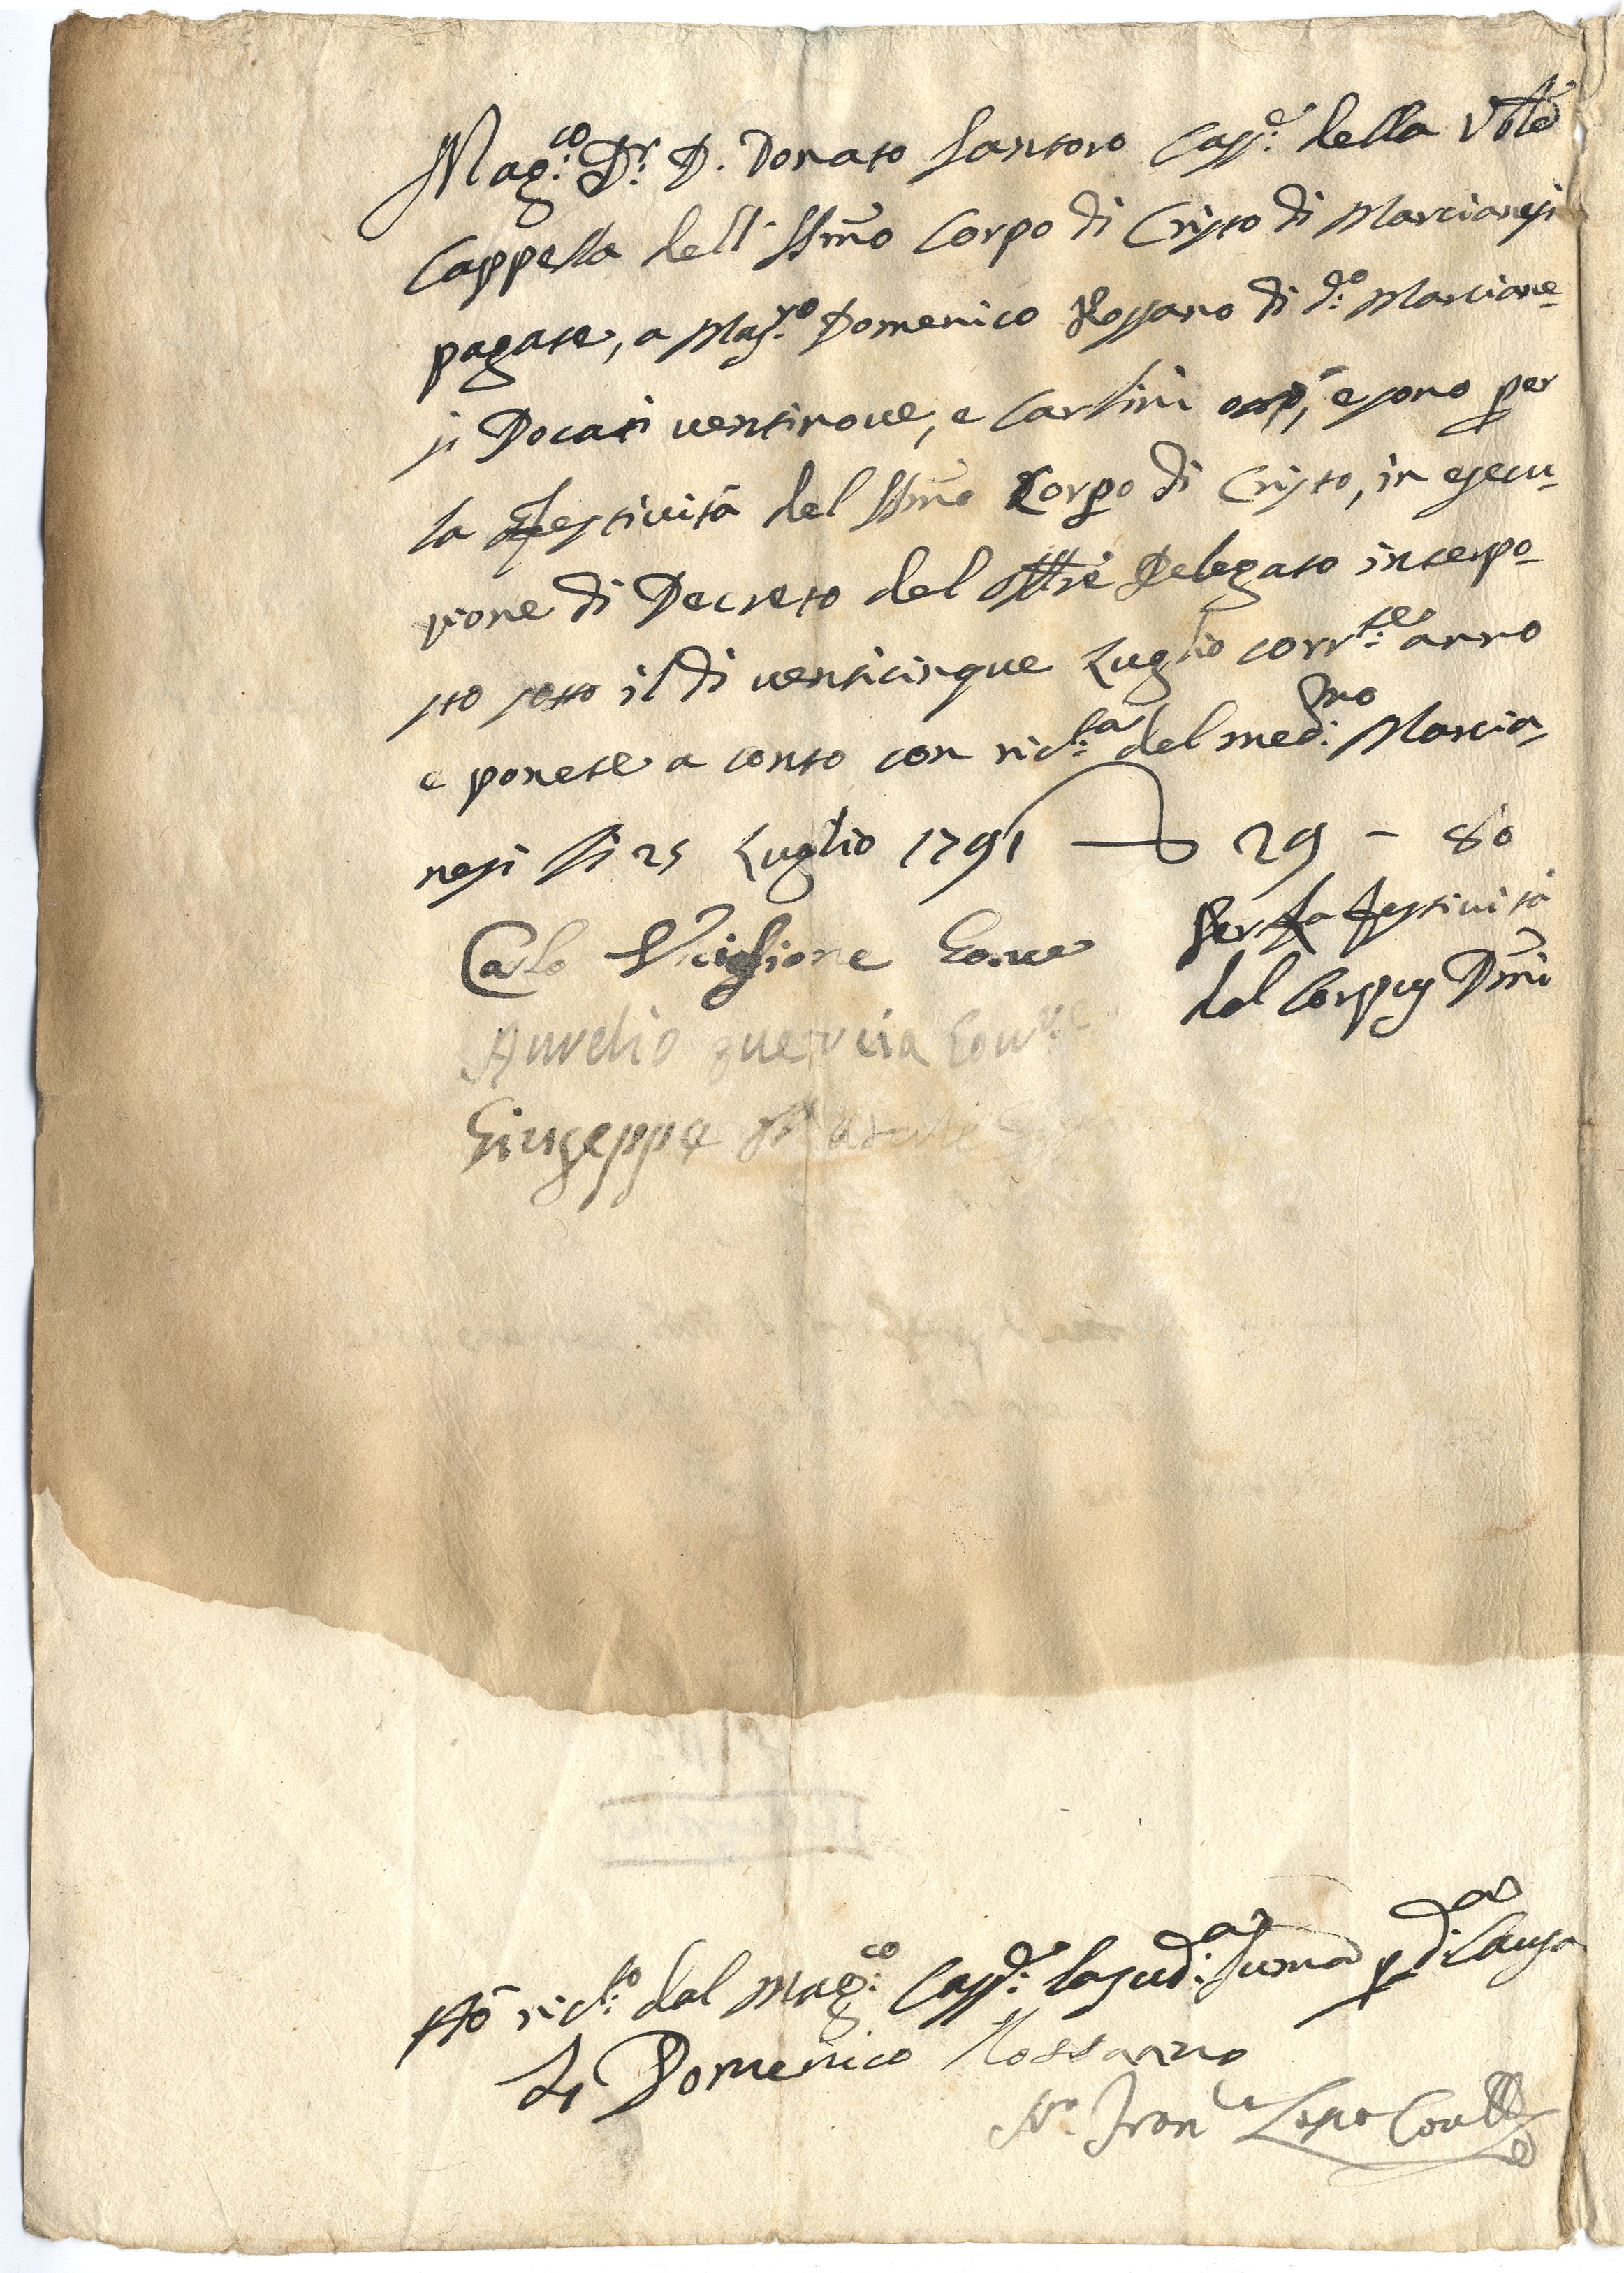 Mag.co Dr. D. Donato Santoro Cass.e della Vble
Cappella dell'SSmo Corpo di Cristo di Marcianesi
pagate, a Mas.ro Domenico Rossano di d.o Marciane-
si Docati ventinove, e Carlini otto, e sono per
la Festività del SSmo Corpo di Cristo, in esecu-
zione di Decreto del Delegato interpo-
sto sotto il di venticinque Luglio corr.te anno
e ponete a conto con ric.ta del med.mo Marcia-
nesi li 25 Luglio 1791 29 - 80
Carlo Viciglione Gov.re
Per la festività
del Corpus Dmni
Aurelio guercia Gov.re
Giuseppe
Hò ric.to dal Mag.co Cass.e la sud.a summa p d.a Causa
Io Domenico Rossano
Nr. Fran.co